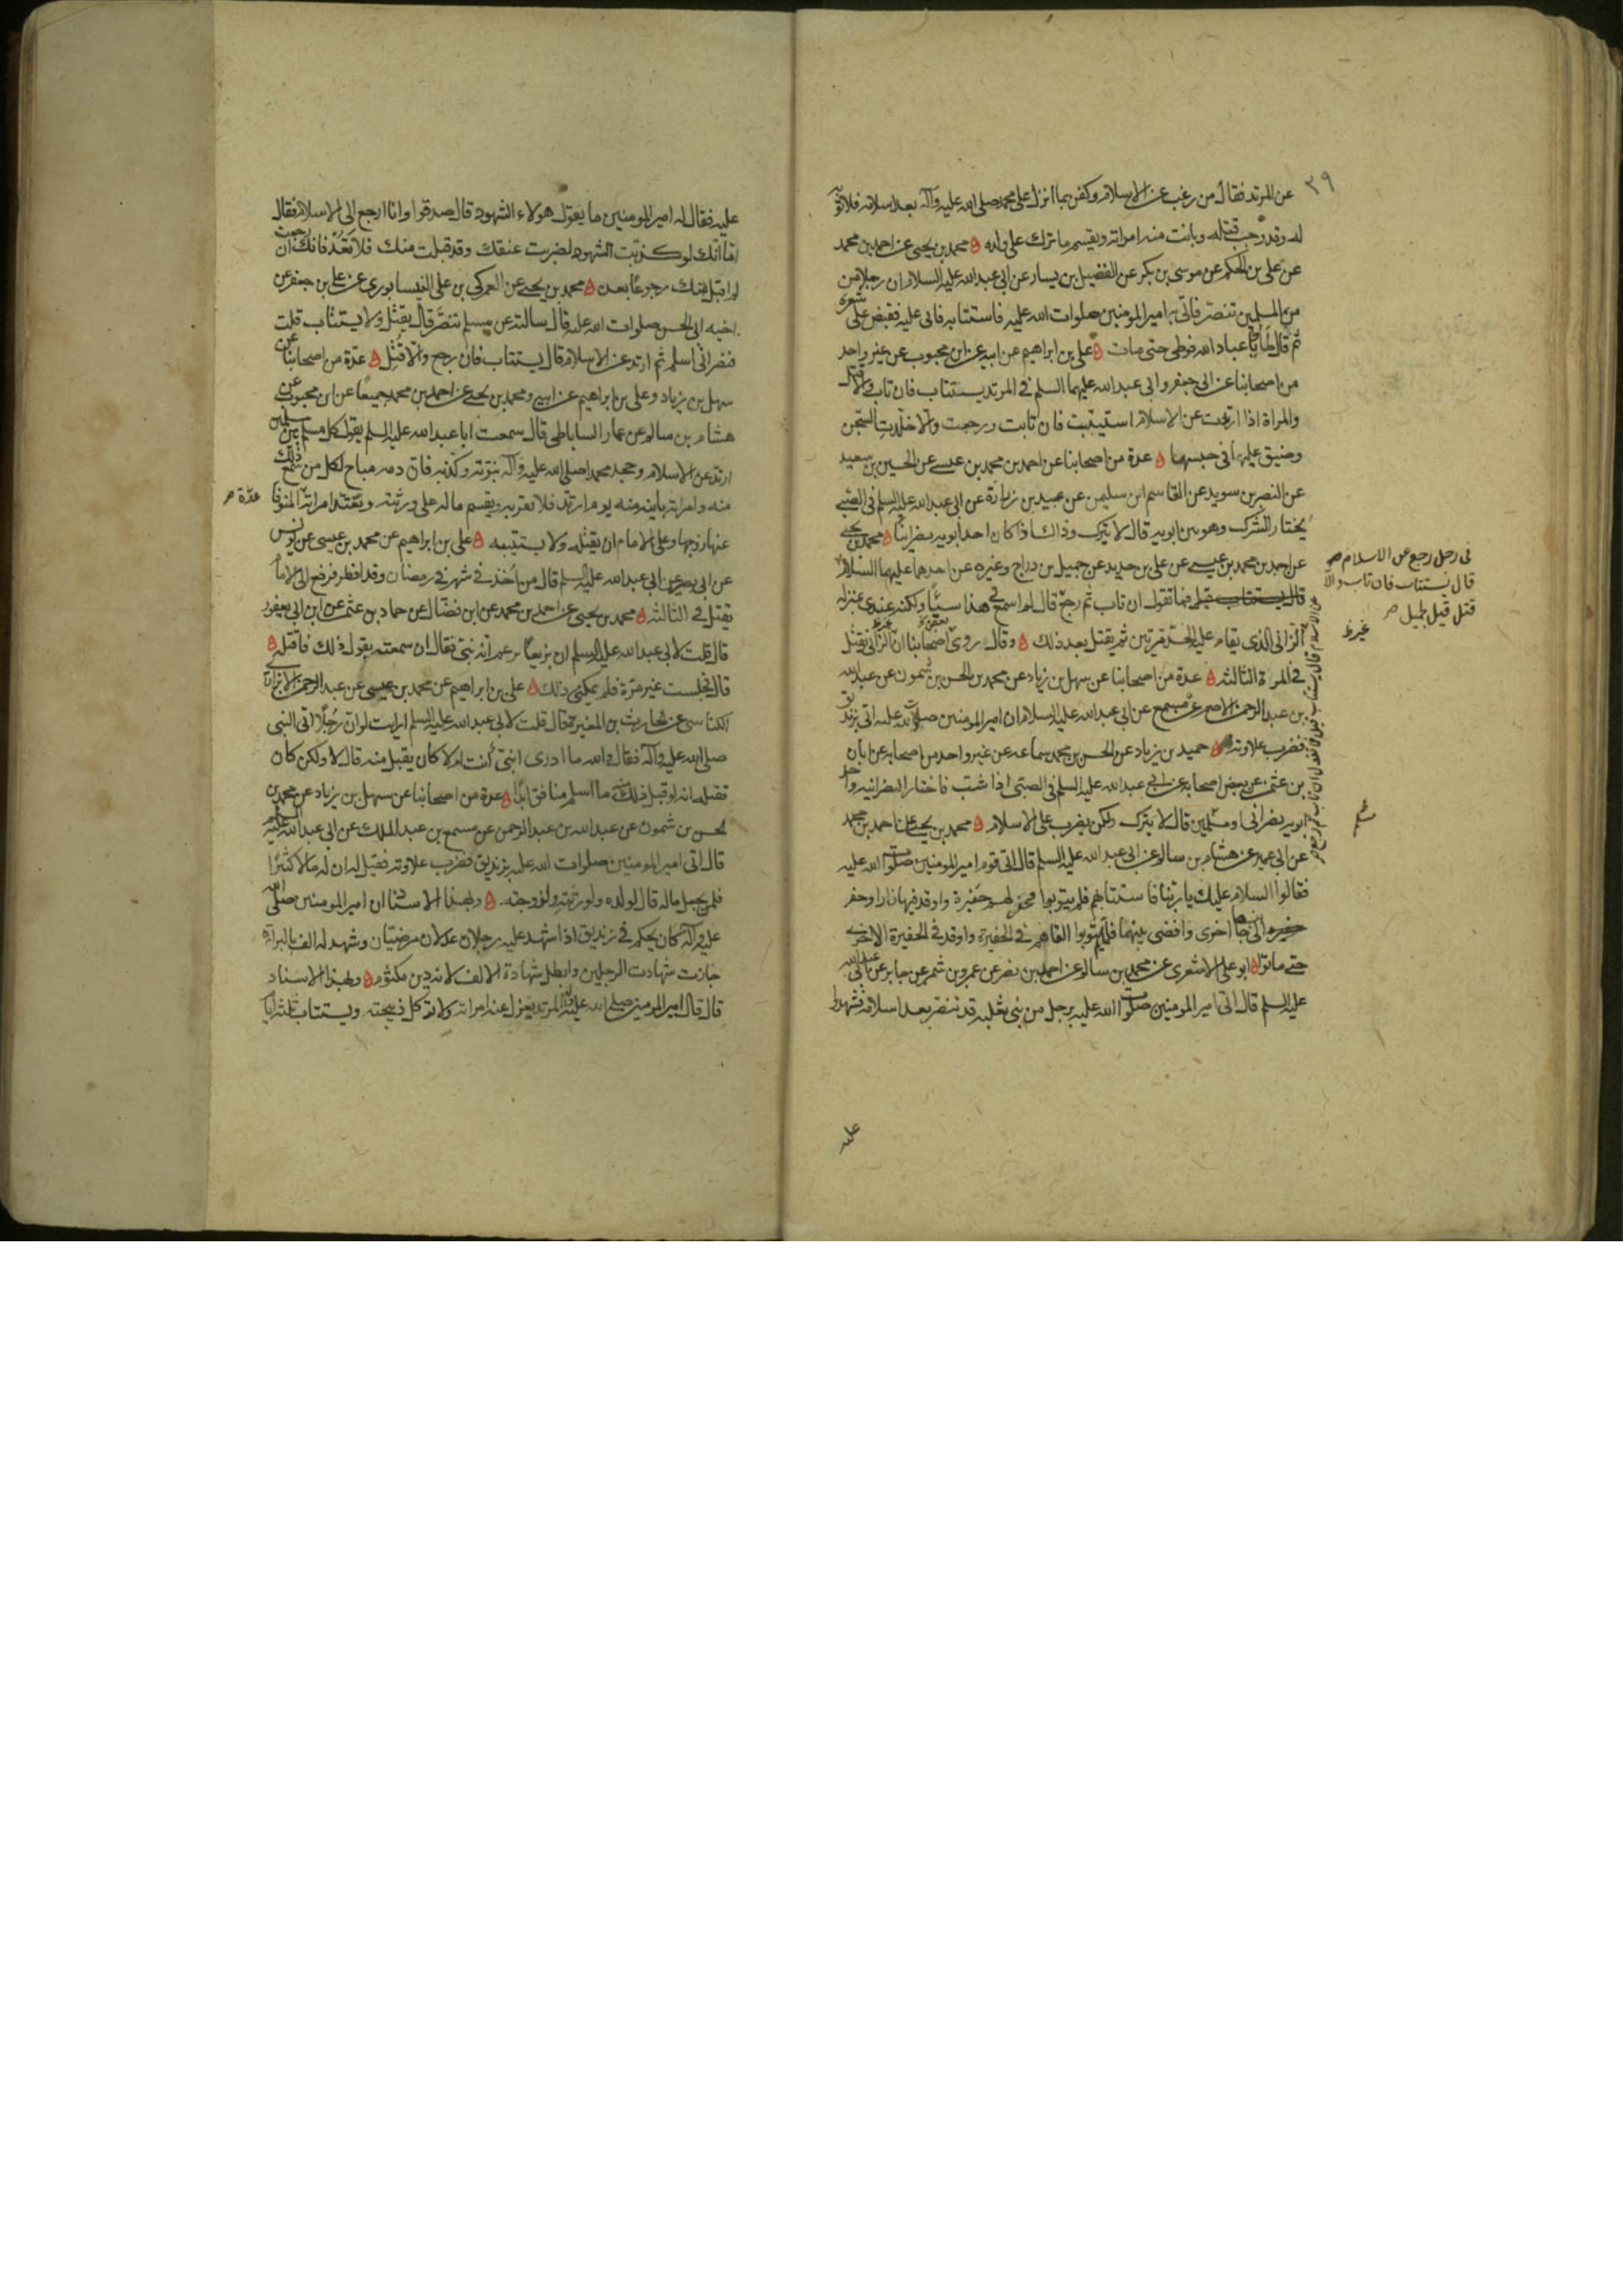 ٣٩
عن المرتد فقال من رغب عن الاسلام وكفر بما انزل على محمد صلى الله عليه وآله بعد اسلامه فلا توبة
له وقد وجب قتله وبانت منه امراته ويقسم ما ترك على ولده محمد بن يحيى عن احمد بن محمد
عن على بن الحكم عن موسى بن بكر عن الفضيل بن يسار عن ابى عبد الله عليه السلام ان رجلا من
من المسلمين تنصر فاتى به امير المومنين صلوات الله عليه فاستتابه فابى عليه فقبض على شعره
ثم قال طأوا عباد الله فوطى حتى مات على بن ابراهيم عن ابيه عن ابن محبوب عن غير واحد
من اصحابنا عن ابى جعفر وابى عبد الله عليهما السلم فى المرتد يستتاب فان تاب والا قتل
والمراة اذا ارتدت عن الاسلام استتيبت فان تابت ورجعت والا خلدت السجن
وضيق عليها فى حبسها عدة من اصحابنا عن احمد بن محمد بن عيسى عن الحسين بن سعيد
عن النضر بن سويد عن القاسم ابن سليمن عن عبيد بن زرارة عن ابى عبد الله عليه السلم فى الصبى
يختار الشرك وهو بين ابويه قال لا يترك وذاك اذا كان احد ابويه نصرانيا محمد بن يحيى
عن احمد بن محمد بن عيسى عن على بن حديد عن جميل بن دراج وغيره عن احدهما عليهما السلام
قال يستتاب قيل فما تقول ان تاب ثم رجع قال لم اسمع فى هذا سيئا ولكنه عندى بمنزلة
الزانى الذى يقام عليه الحد مرتين ثم يقتل بعد ذلك وقال روى اصحابنا ان الزانى يقتل
فى المرة الثالثة عدة من اصحابنا عن سهل بن زياد عن محمد بن الحسن بن شمون عن عبد الله
بن عبد الرحمن الاصم عن مسمع عن ابى عبد الله عليه السلام ان امير المومنين صلوات الله عليه اتى بزنديق
فضرب علاوته حميد بن زياد عن الحسن بن محمد سماعه عن غير واحد من اصحابه عن ابان
بن عثمن عن بعض اصحابه عن ابى عبد الله عليه السلم فى الصبى اذا شب فاختار النصرانيه واحد
ابويه نصرانى او مسلمين قال لا يترك ولكن يضرب على الاسلام محمد بن يحيى عن احمد بن محمد
عن ابى عمير عن هشام بن سالم عن ابى عبد الله عليه السلم قال اتى قوم امير المومنين صلوات الله عليه
فقالوا السلام عليك يا ربنا فاستتابهم فلم يتوبوا فحفر لهم حفيرة واوقد فيها نارا وحفر
حفيره الى جانبها اخرى وافضى بينهما فلما لم يتوبوا القاهم فى الحفيرة واوقد فى الحفيرة الاخرى
حتى ماتوا ابو على الاشعرى عن محمد بن سالم عن احمد بن نضر عن عمرو بن شمر عن جابر عن ابى عبد الله
عليه السلم قال اتى امير المومنين صلوات الله عليه برجل من بنى ثعلبه قد تنصر بعد اسلامه فشهدوا
عليه
فى رجل رجع عن الاسلام صح
قال يستتاب فان تاب والا
قتل قيل لجميل صح
عليه فقال له امير المومنين ما يقول هولاء الشهود قال صدقوا وانا ارجع الى الاسلام فقال
اما انك لو كذبت الشهود لضربت عنقك وقد قبلت منك فلا تعد فانك ان رجعت
لم اقبل منك رجوعا بعده محمد بن يحيى عن العمركى بن على النيسابورى عن على بن جعفر عن
اخيه ابى الحسن صلوات الله عليه قال سالته عن مسلم تنصر قال يقتل ولا يستتاب قلت
فنصرانى اسلم ثم ارتد عن الاسلام قال يستتاب فان رجع والا قتل عدة من اصحابنا عن
سهل بن زياد وعلى بن ابراهيم عن ابيه ومحمد بن يحيى عن احمد بن محمد جميعا عن ابن محبوب عن
هشام بن سالم عن عمار الساباطى قال سمعت ابا عبد الله عليه السلم يقول كل مسلم بين مسلمين
ارتد عن الاسلام وجحد محمدا صلى الله عليه وآله نبوته وكذبه فان دمه مباح لكل من سمع ذلك
منه وامراته باينه منه يوم ارتد فلا تقربه ويقسم ماله على ورثته وتعتد امراته المتوفا
عدة صح
عنها زوجها وعلى الامام ان يقتله ولا يستتيبه على بن ابراهيم عن محمد بن عيسى عن يونس
عن ابى بصير عن ابى عبد الله عليه السلم قال من اخذ فى شهر رمضان وقد افطر فرفع الى الامام
يقتل فى الثالثه محمد بن يحيى عن احمد بن محمد عن ابن فضال عن حماد بن عثمن عن ابن ابى يعفور
قال قلت لابى عبد الله عليه السلم ان بزيعا يزعم انه نبى فقال ان سمعته يقول ذلك فاقتله
قال فجلست غير مرة فلم يمكنى ذلك على بن ابراهيم عن محمد بن عيسى عن عبد الرحمن الابزارى
الكناسى عن الحارث بن المغيرة قال قلت لابى عبد الله عليه السلم ارايت لو ان رجلا اتى النبى
صلى الله عليه وآله فقال والله ما ادرى انبى انت ام لا كان يقبل منه قال لا ولكن كان
تقتله انه لو قبل ذلك ما اسلم منافق ابدا عدة من اصحابنا عن سهل بن زياد عن محمد بن
الحسن بن شمون عن عبد الله بن عبد الرحمن عن مسمع بن عبد الملك عن ابى عبد الله عليه السلام
قال اتى امير المومنين صلوات الله عليه بزنديق فضرب علاوته فقيل له ان له مالا كثيرا
فلمن يجعل ماله قال لولده ولورثته ولزوجته وبهذا الاسناد ان امير المومنين صلى الله
عليه وآله كان يحكم فى زنديق اذا شهد عليه رجلان عدلان مرضيان وشهد له الف بالبراة
جازت شهادت الرجلين وابطل شهادة الالف لانه دين مكتوم وبهذا الاسناد
قال قال امير المومنين صلى الله عليه وآله المرتد يعزل عنه امراته ولا توكل ذبيحته ويستتاب ثلثة ايام